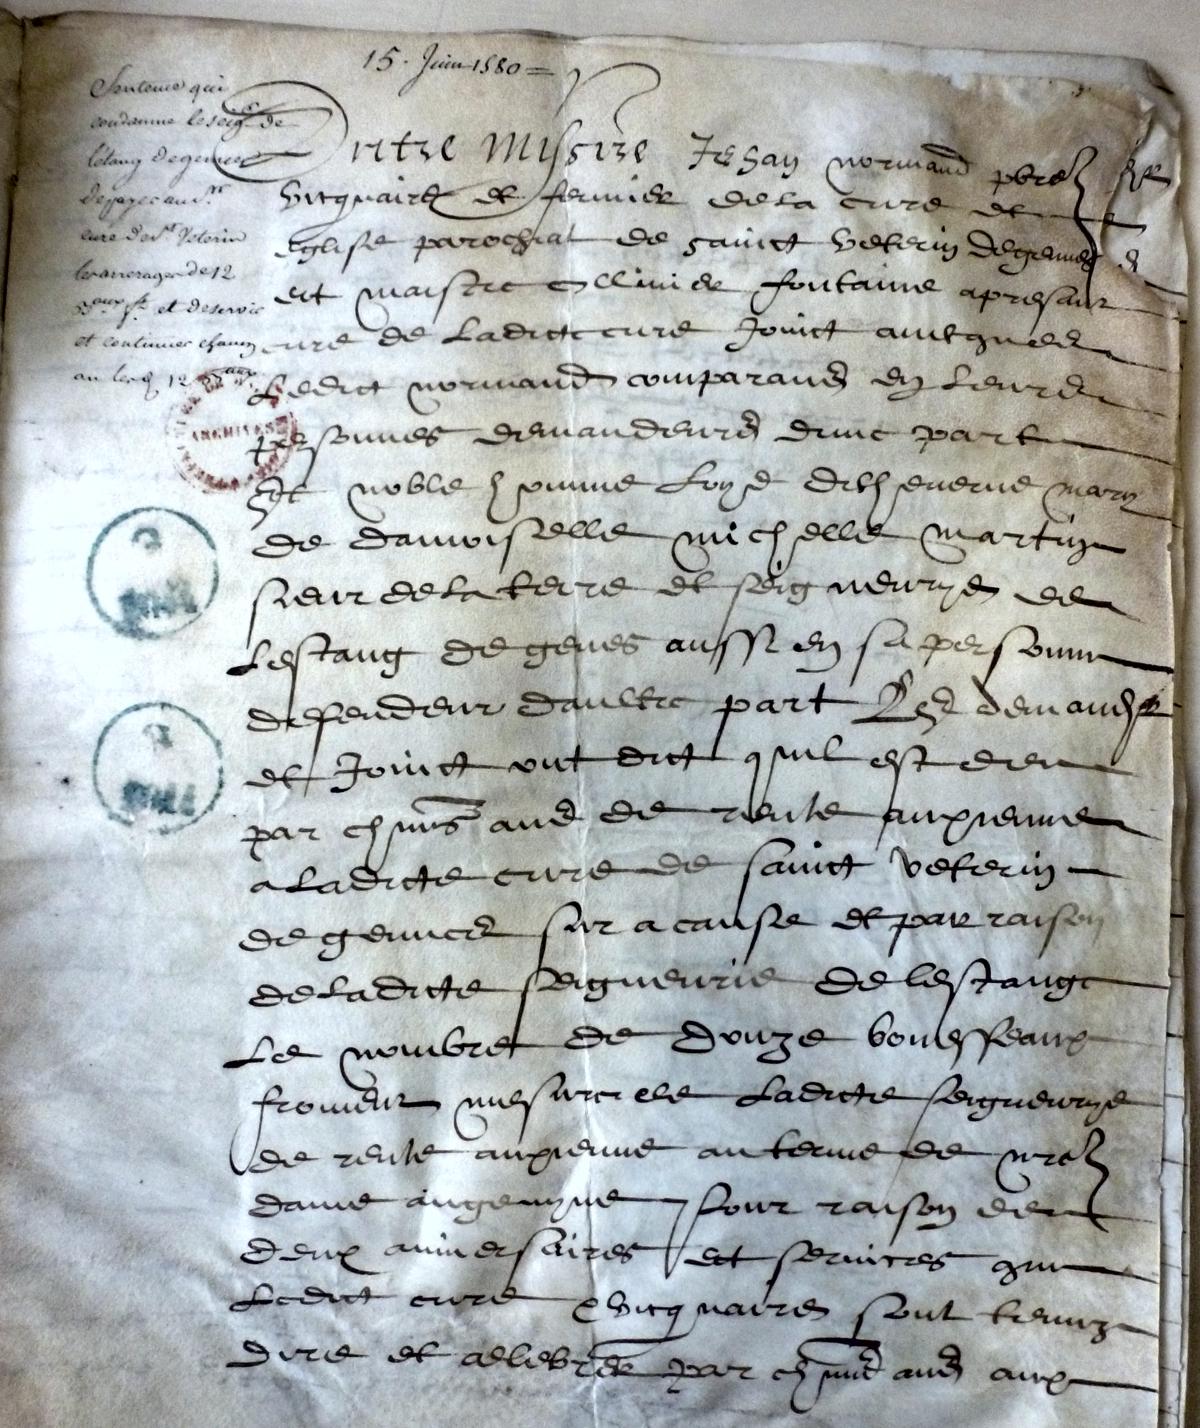 15. Juin 1580
Sentence qui
condamne le seigr. de
letang de gennes
de payer au Sr.
curé de St. Veterin
les arrerages de 12
Bxaux ft. et de servir
et continuer chacun
an lesd. 12 Bxaux
Entre Missire Jehan normand pbre
vicquaire et fermier de la cure et
eglise parochial de sainct veterin de gennes
et maistre Ollivier fontaine a present
curé de Ladicte cure Joinct avecques
Ledict normand comparans en leurs
personnes demandeurs dune part
Et noble homme Loys mary
de damoiselle michelle martin
sieur de la terre et seigneurye de
Lestang de genes aussi en sa personne
defendeur daultre part Lesd demandr
et Joinct ont dict quil est deu
par chacuns ans de rente anxienne
a Ladicte cure de sainct Veterin
de gennes sur a cause et par raison
de Ladicte seigneurie de lestang
Le nombre de douze bouesseaux
froment mesure de Ladicte seigneurye
de rente anxienne au terme de nre
dame angevyne pour raison de
deux aniversaires et services que
Ledict curé vicquaire sont tenuz
dire et celebrer par chacuns ans aux
ARCHIVES